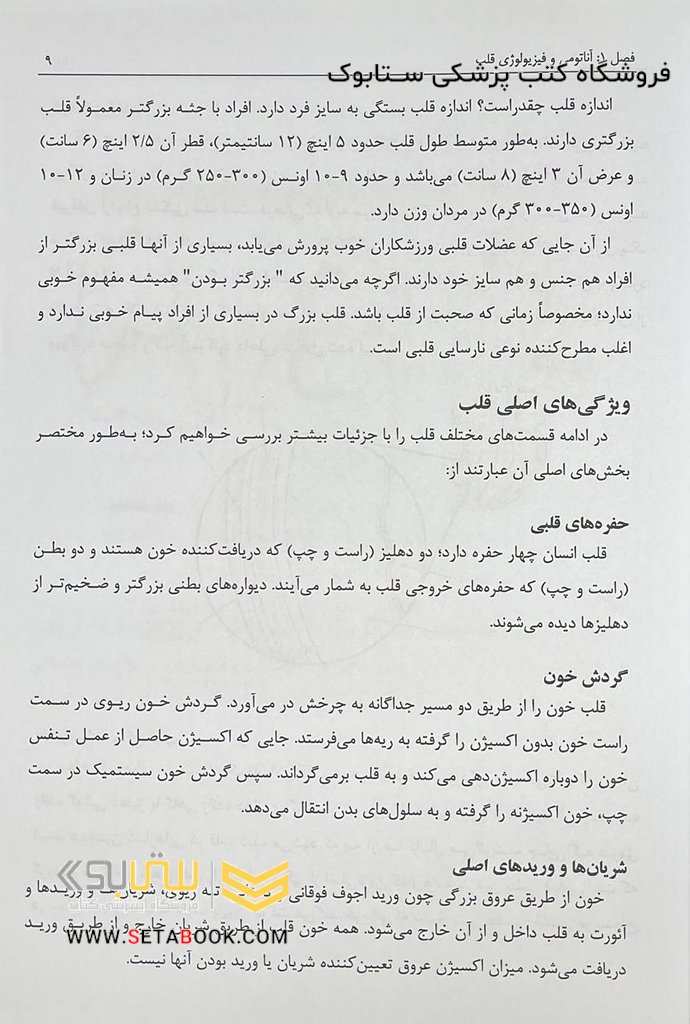 فصل ۱: آناتومی و فیزیولوژی قلب ۹
فروشگاه کتب پزشکی ستابوک
اندازه قلب چقدراست؟ اندازه قلب بستگی به سایز فرد دارد. افراد با جثه بزرگتر معمولاً قلب
بزرگتری دارند. به‌طور متوسط طول قلب حدود ۵ اینچ (۱۲ سانتیمتر)، قطر آن ۲/۵ اینچ (۶ سانت)
و عرض آن ۳ اینچ (۸ سانت) می‌باشد و حدود ۹-۱۰ اونس (۳۰۰-۲۵۰ گرم) در زنان و ۱۲-۱۰
اونس (۳۵۰-۳۰۰ گرم) در مردان وزن دارد.
از آن جایی که عضلات قلبی ورزشکاران خوب پرورش می‌یابد، بسیاری از آنها قلبی بزرگتر از
افراد هم جنس و هم سایز خود دارند. اگرچه می‌دانید که " بزرگتر بودن" همیشه مفهوم خوبی
ندارد؛ مخصوصاً زمانی که صحبت از قلب باشد. قلب بزرگ در بسیاری از افراد پیام خوبی ندارد و
اغلب مطرح‌کننده نوعی نارسایی قلبی است.
ویژگی‌های اصلی قلب
در ادامه قسمت‌های مختلف قلب را با جزئیات بیشتر بررسی خواهیم کرد؛ به‌طور مختصر
بخش‌های اصلی آن عبارتند از:
حفره‌های قلبی
قلب انسان چهار حفره دارد؛ دو دهلیز (راست و چپ) که دریافت‌کننده خون هستند و دو بطن
(راست و چپ) که حفره‌های خروجی قلب به شمار می‌آیند. دیواره‌های بطنی بزرگتر و ضخیم‌تر از
دهلیزها دیده می‌شوند.
گردش خون
قلب خون را از طریق دو مسیر جداگانه به چرخش در می‌آورد. گردش خون ریوی در سمت
راست خون بدون اکسیژن را گرفته به ریه‌ها می‌فرستد. جایی که اکسیژن حاصل از عمل تنفس
خون را دوباره اکسیژن‌دهی می‌کند و به قلب برمی‌گرداند. سپس گردش خون سیستمیک در سمت
چپ، خون اکسیژنه را گرفته و به سلول‌های بدن انتقال می‌دهد.
شریان‌ها و وریدهای اصلی
خون از طریق عروق بزرگی چون ورید اجوف فوقانی تنه ریوی، شریان‌ها و وریدها و
آئورت به قلب داخل و از آن خارج می‌شود. همه خون قلب از طریق شریان خارج و از طریق ورید
دریافت می‌شود. میزان اکسیژن عروق تعیین‌کننده شریان یا ورید بودن آنها نیست.
ستابوک
فروشگاه اینترنتی کتاب
WWW.SETABOOK.COM